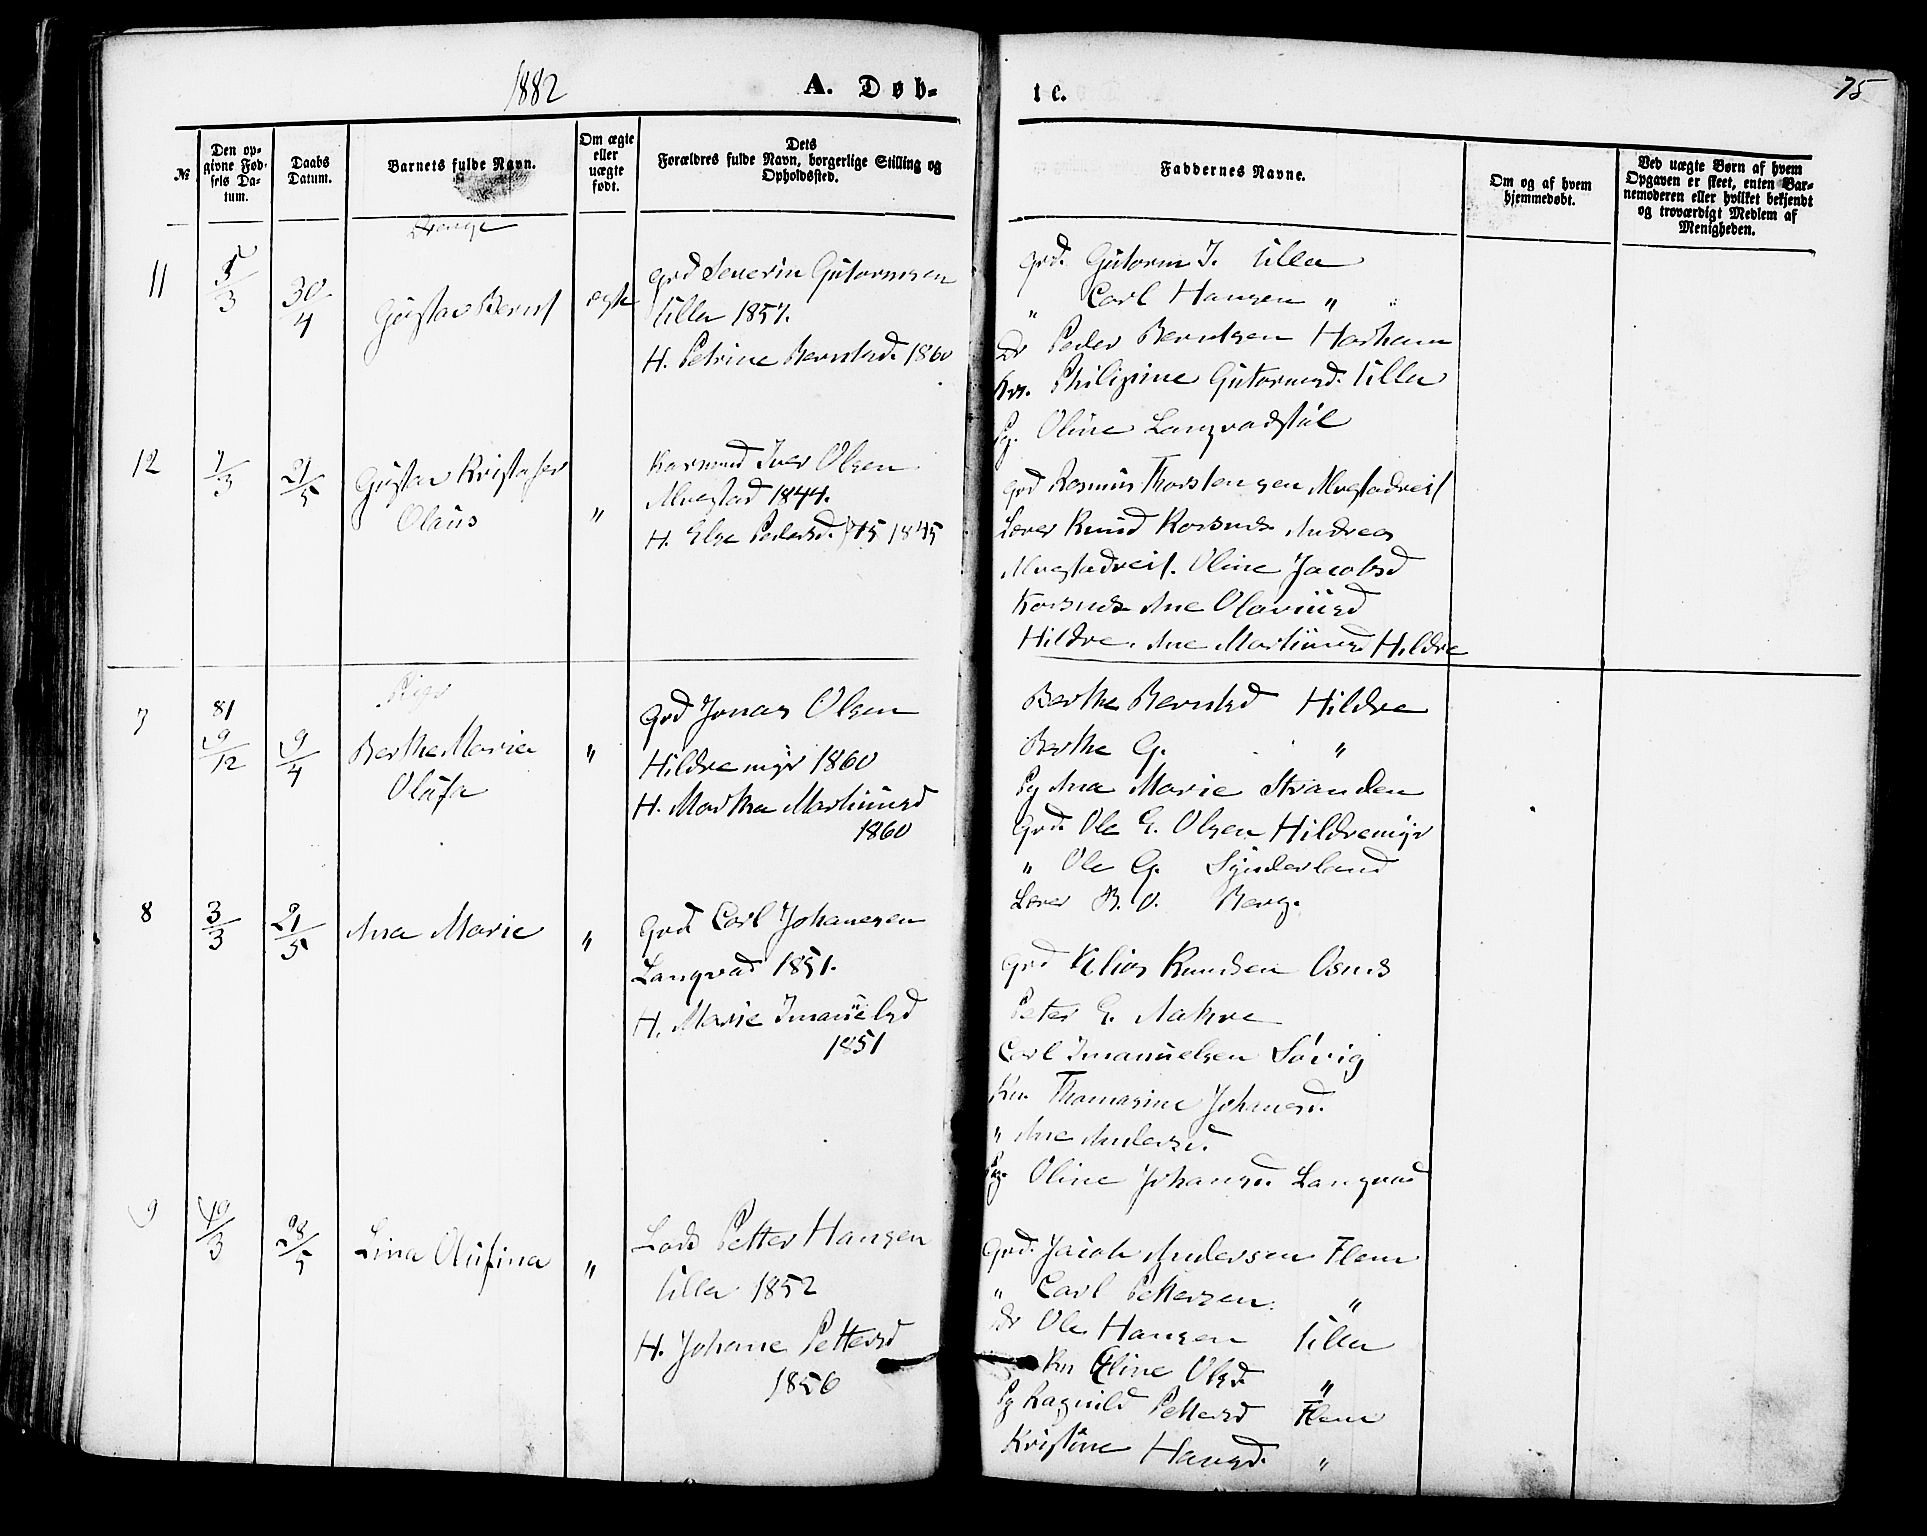 1882
A. Døb-
te.
75
№
Den op-
givne Fød-
sels Da-
tum.
Daabs
Datum.
Barnets fulde Navn.
Om ægte
eller
uægte
født.
Dets
Forældres fulde Navn, borgerlige Stilling og
Opholdssted.
Faddernes Navne.
Om og af hvem
hjemmedøbt.
Ved uægte Børn af hvem
Opgaven er skeet, enten Bar-
nemoderen eller hvilket bekjendt
og troværdigt Medlem af
Menigheden.
Drenge
11
/3
30/4
Gustav Bernt
ægte
grd Severin Gutormsen
Ulla 1857.
H. Petrine Berntsd. 1860
grd. Gutorm J. Ulla
" Carl Hansen " "
Dr Peder Berntsen Harham
Kr. Philipine Gutormsd. Ulla
Pg. Oline Langvadstøl
12
7/3
21/5
Gustav Kristofer
Olaus
"
Iver Olsen
Alvestad 1844.
H. Else Pedersd. 1845
grd Rasmus Thorstensen Alvestadreit
Lærer Knud Korsnes Andreas
Alvestadreit. Oline Jacobsd
Korsnes Ane Olaviusd
Hildre. Ane Martinusd Hildre
Piger
7
81
9/12
9/4
Berthe Marie
Olufa
"
grd Jonas Olsen
Hildremyr 1860
H. Marthe Martinusd
1860
Berthe Berntsd Hildre
Berthe G. "
Pg Ana Marie Stranden
Grd. Ole E. Olsen Hildremyr
" Ole G. Synderland
Lærer B. O. Berg.
8
3/3
21/5
Ana Marie
"
Grd Carl Johansen
Langvad 1851.
H. Marie Imanuelsd
1851
grd Elias Knudsen Osnes
Peter E. Aakre
Carl Imanuelsen Søvig
Kn. Thomasine Johansd.
" Ane Andersd.
Pg. Oline Johansd. Langvad
9
19/3
28/5
Lina Olufina
"
Petter Hansen
Ulla 1852
H. Johane Pettersd
1856
Grd. Jacob Andersen Flem
" Carl Pettersen "
Dr Ole Hansen Ulla
Kn Eline Olsd. "
Pg Ragnild Pettersd Flem
Kristine Hansd. "